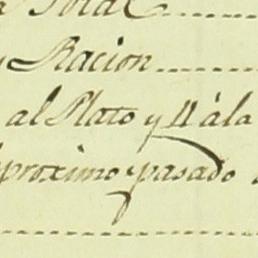 Total
y Racion
al Plato y 11 àla
proximo pasado